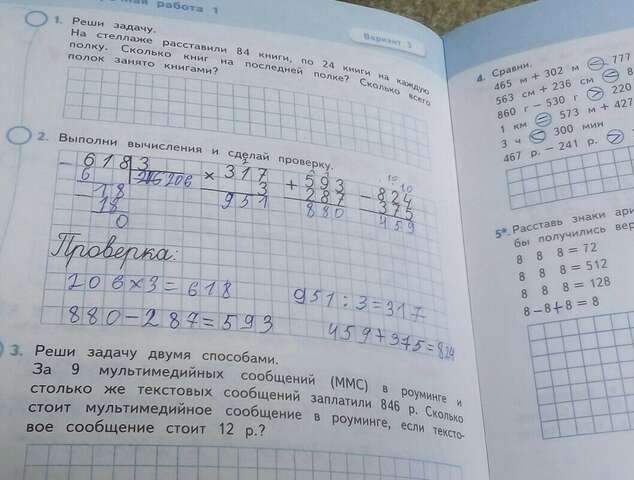 работа 1
Вариант 3
1. Реши задачу.
На стеллаже расставили 84 книги, по 24 книги на каждую
полку. Сколько книг на последней полке? Сколько всего
полок занято книгами?
2. Выполни вычисления и сделай проверку.
618 3 × 317 + 593 − 824
6 206 3 287 375
18 951 880 459
18
0
Проверка:
206×3=618
951:3=317
880−287=593
459+375=824
3. Реши задачу двумя способами.
За 9 мультимедийных сообщений (ММС) в роуминге и
столько же текстовых сообщений заплатили 846 р. Сколько
стоит мультимедийное сообщение в роуминге, если тексто-
вое сообщение стоит 12 р.?
4. Сравни.
465 м + 302 м = 777
563 см + 236 см = 8
860 г − 530 г > 220
1 км = 573 м + 427
3 ч < 300 мин
467 р. − 241 р. >
5*. Расставь знаки
бы получились
8 8 8 = 72
8 8 8 = 512
8 8 8 = 128
8−8+8 = 8